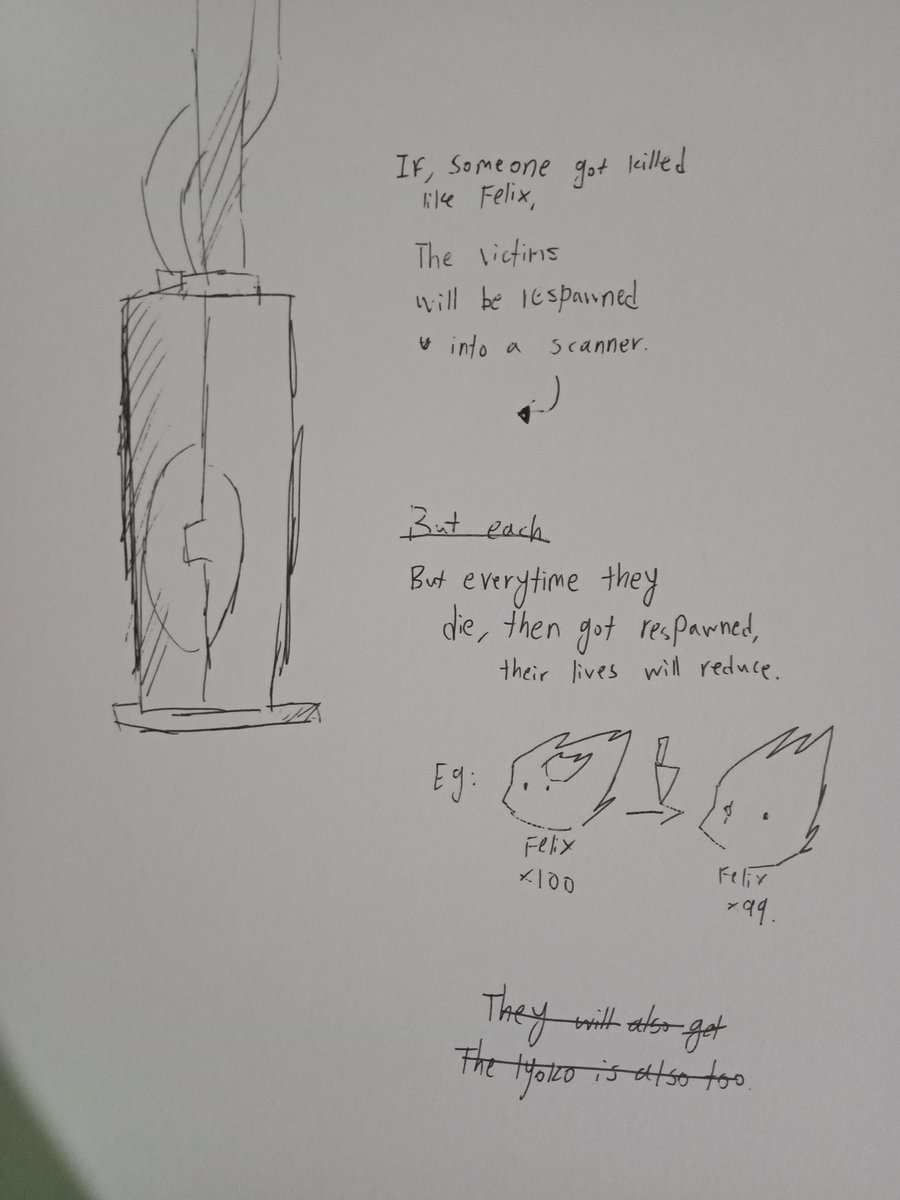 If, someone got killed
like Felix,
The victims
will be respawned
into a scanner.
But each
But everytime they
die, then got respawned,
their lives will reduce.
Eg:
Felix
x100
Felix
x99.
They will also get
The lyoko is also too.